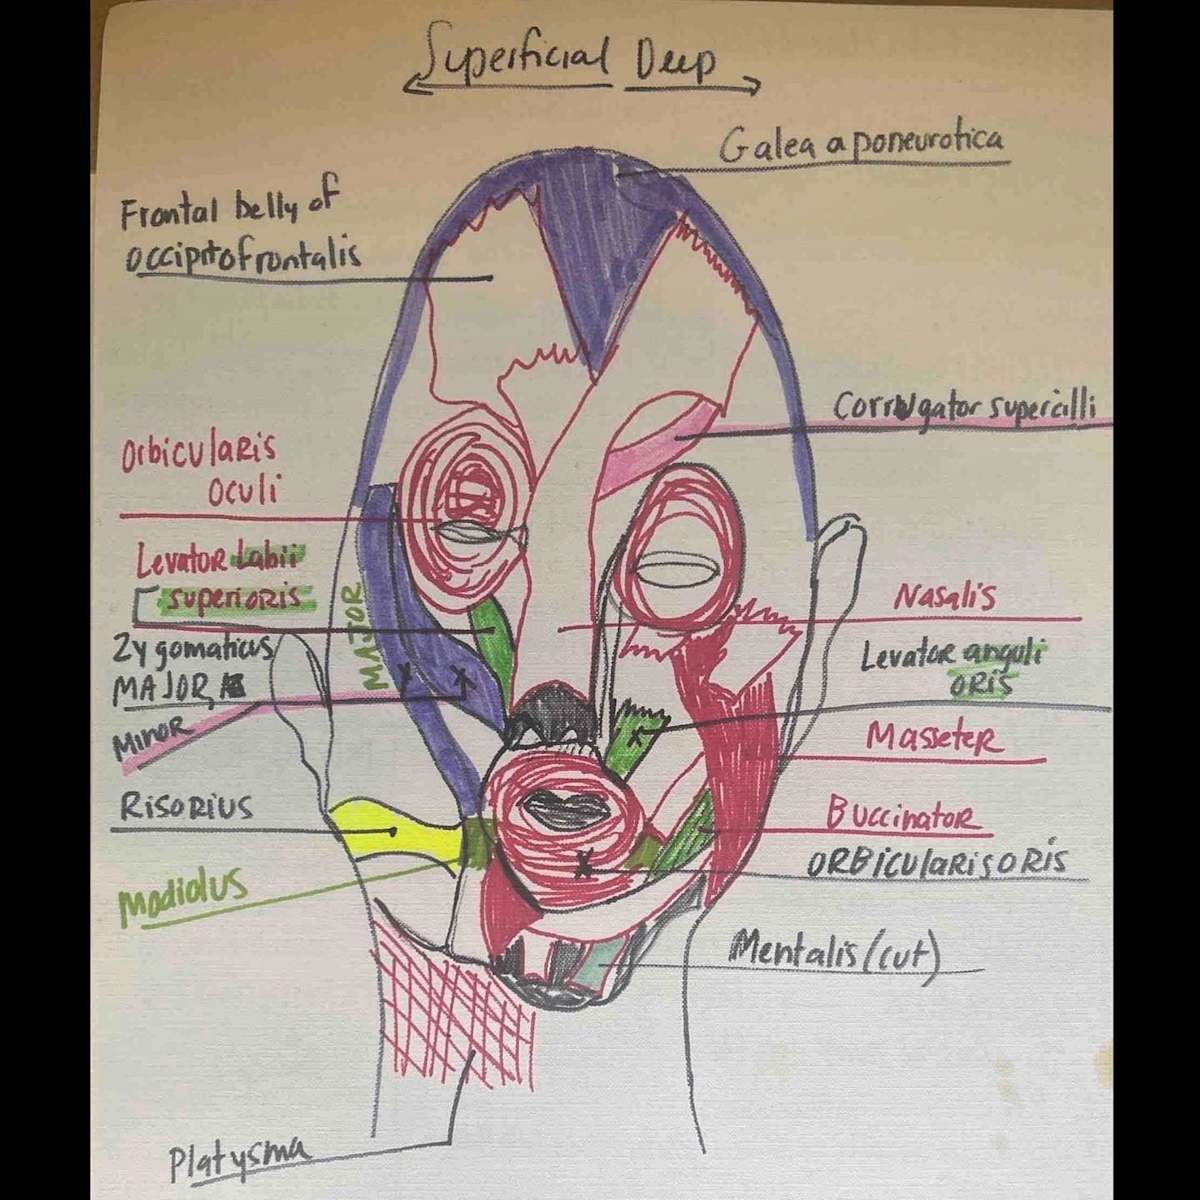 Superficial Deep
Galea aponeurotica
Frontal belly of
occipitofrontalis
Corrugator supercilli
Orbicularis
oculi
Levator Labii
superioris
MAJOR
Nasalis
Zygomaticus
MAJOR,
Minor
Levator anguli
ORIS
Masseter
RISORIUS
Buccinator
ORBICULARISORIS
Modiolus
Mentalis (cut)
Platysma